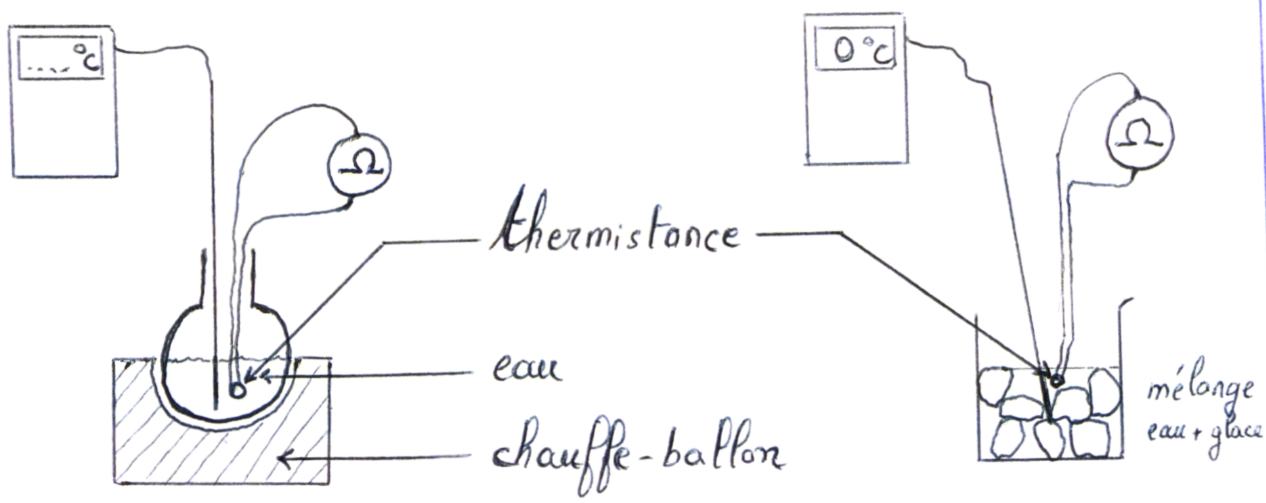 .... °C
0 °C
Ω
Ω
thermistance
eau
chauffe-ballon
mélange
eau + glace